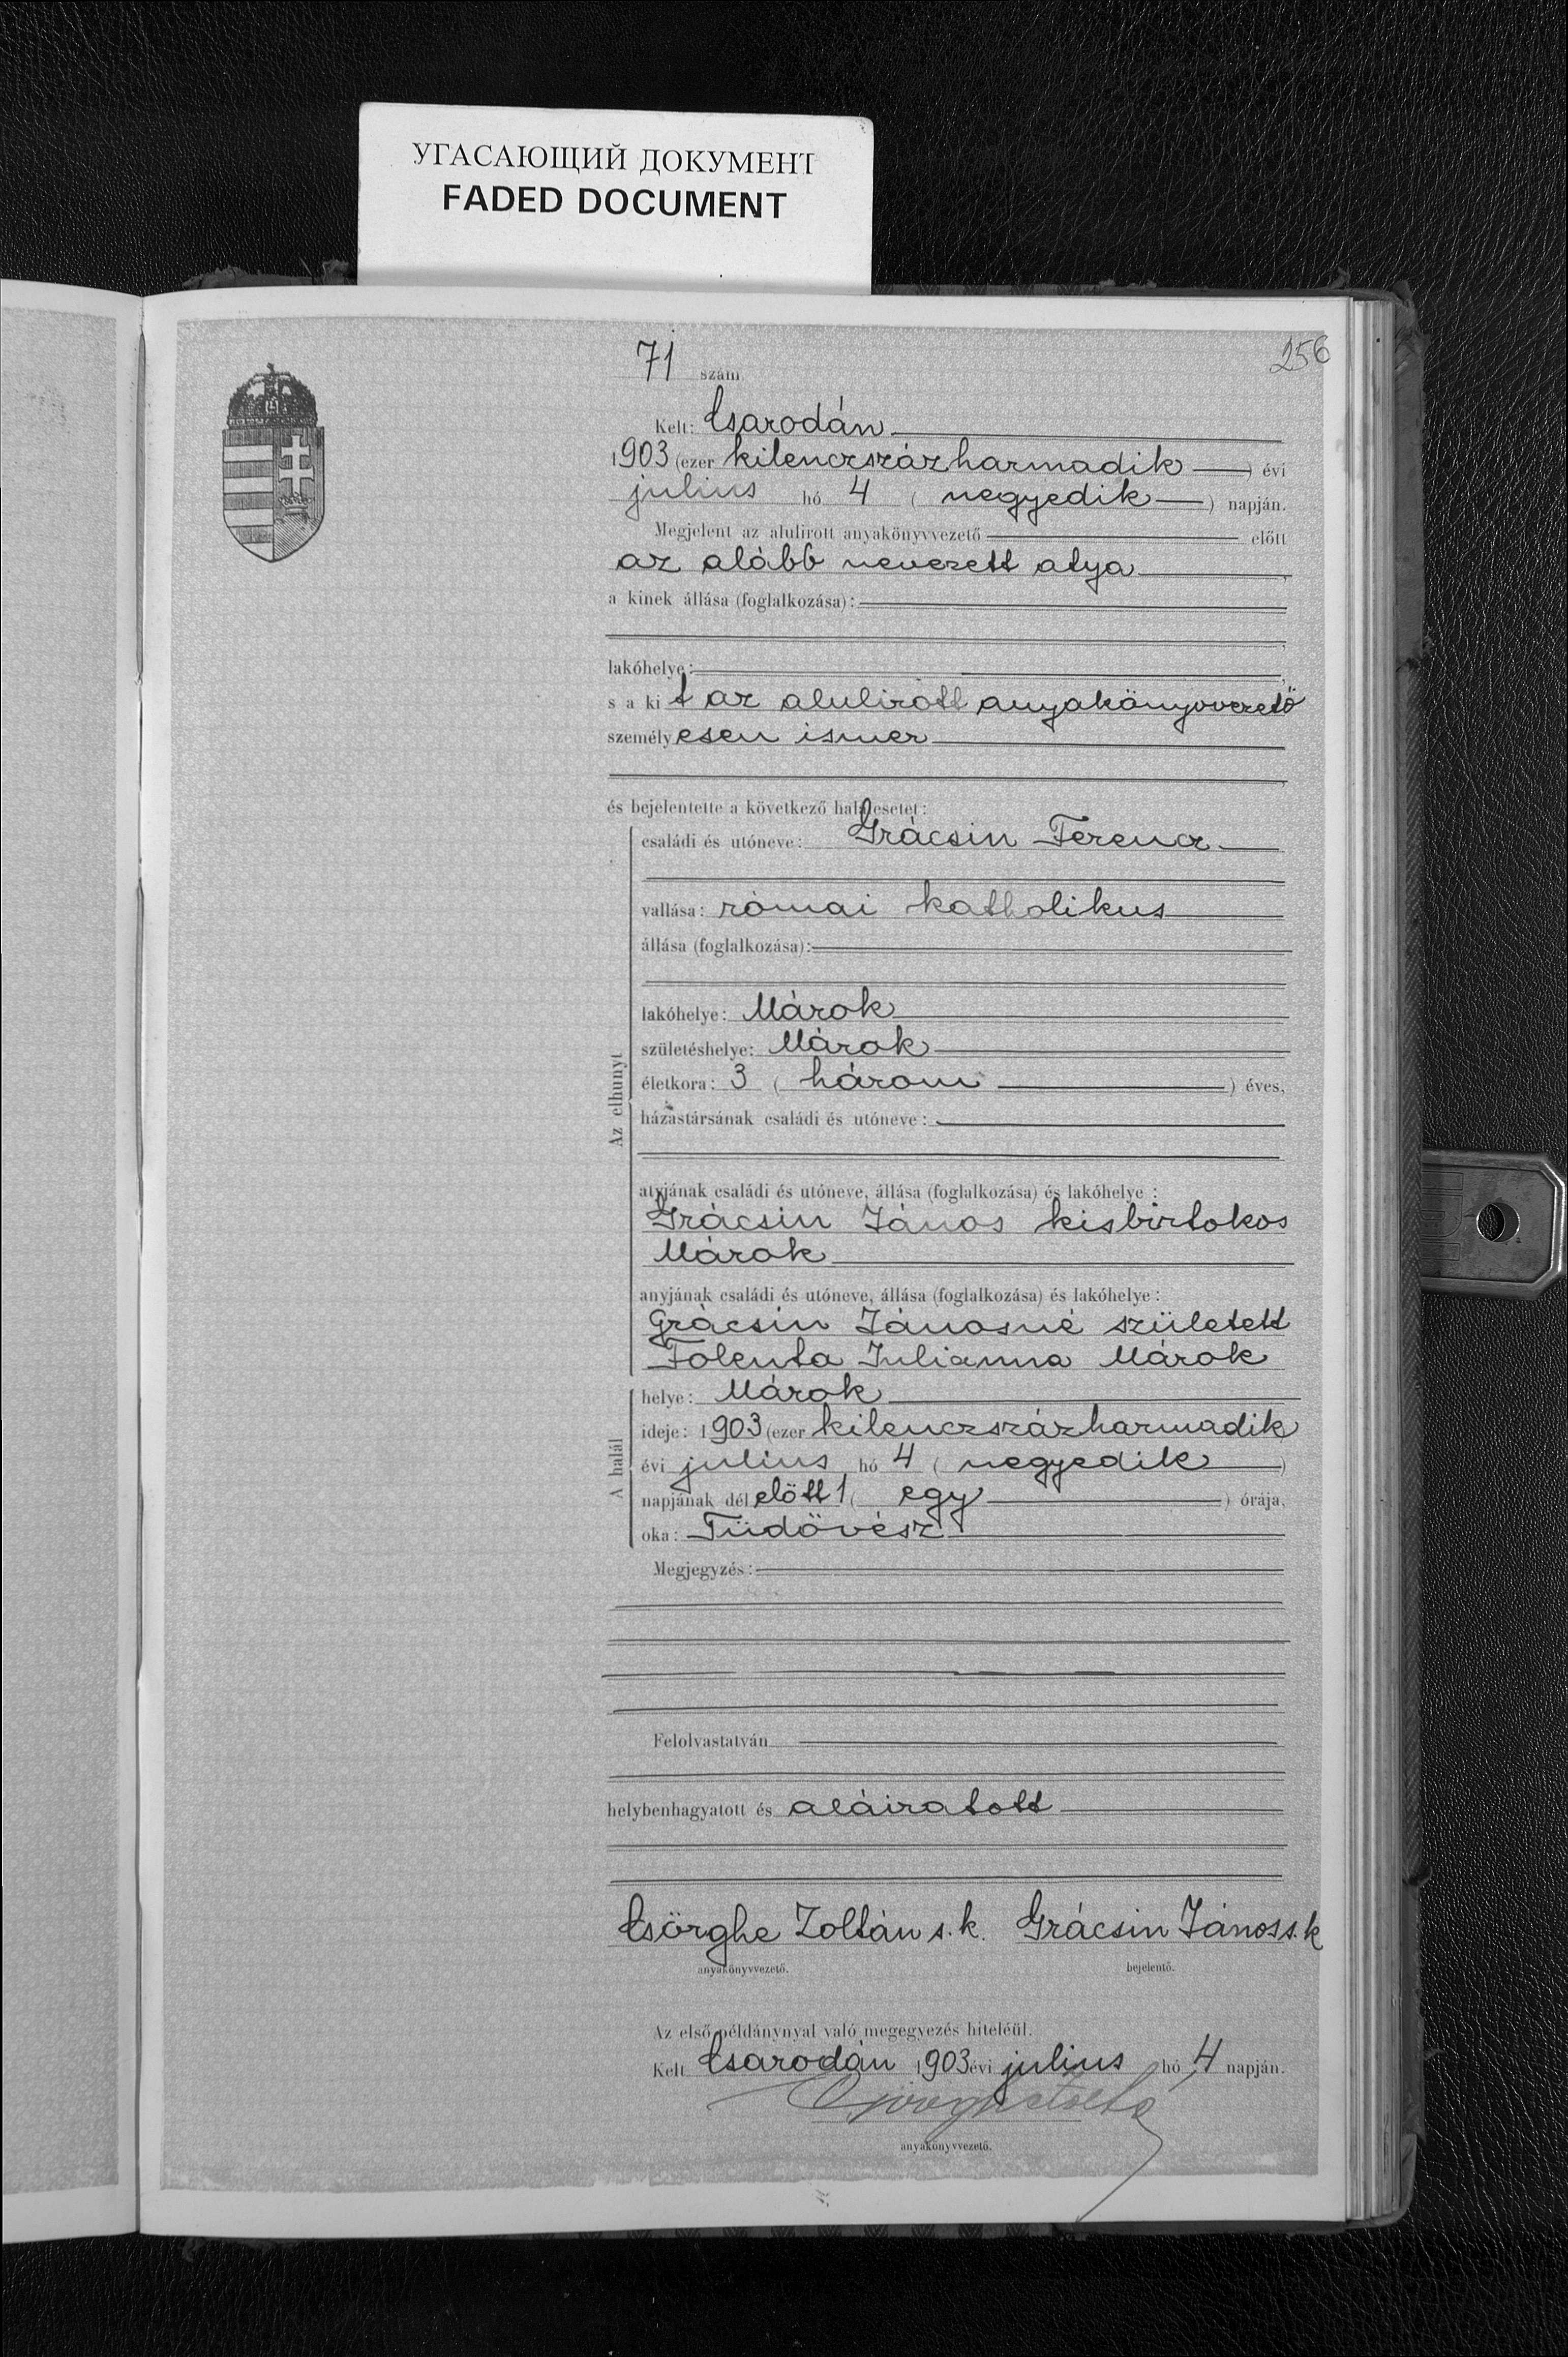 УГАСАЮЩИЙ ДОКУМЕНТ
FADED DOCUMENT
256
71 szám.
Kelt: Csarodán
1903 (ezer kilenczszázharmadik) évi
julius hó 4 (negyedik) napján.
Megjelent az alulirott anyakönyvvezető előtt
az alább nevezett atya,
a kinek állása (foglalkozása):
lakóhelye:
s a kit az alulirott anyakönyvvezető
személyesen ismer
és bejelentette a következő halálesetet:
Az elhunyt
családi és utóneve: Grácsin Ferencz
vallása: római katholikus
állása (foglalkozása):
lakóhelye: Márok
születéshelye: Márok
életkora: 3 (három) éves,
házastársának családi és utóneve:
atyjának családi és utóneve, állása (foglalkozása) és lakóhelye:
Grácsin János kisbirtokos
Márok
anyjának családi és utóneve, állása (foglalkozása) és lakóhelye:
Grácsin Jánosné született
Folenta Julianna Márok
A halál
helye: Márok
ideje: 1903 (ezer kilenczszázharmadik)
évi julius hó 4 (negyedik)
napjának délelőtt 1 (egy) órája,
oka: Tüdővész
Megjegyzés:
Felolvastatván
helybenhagyatott és aláiratott
Csörghe Zoltán s.k. Grácsin János s.k
anyakönyvvezető. bejelentő.
Az első példánynyal való megegyezés hiteléül.
Kelt Csarodán 1903 évi julius hó 4 napján.
anyakönyvvezető.